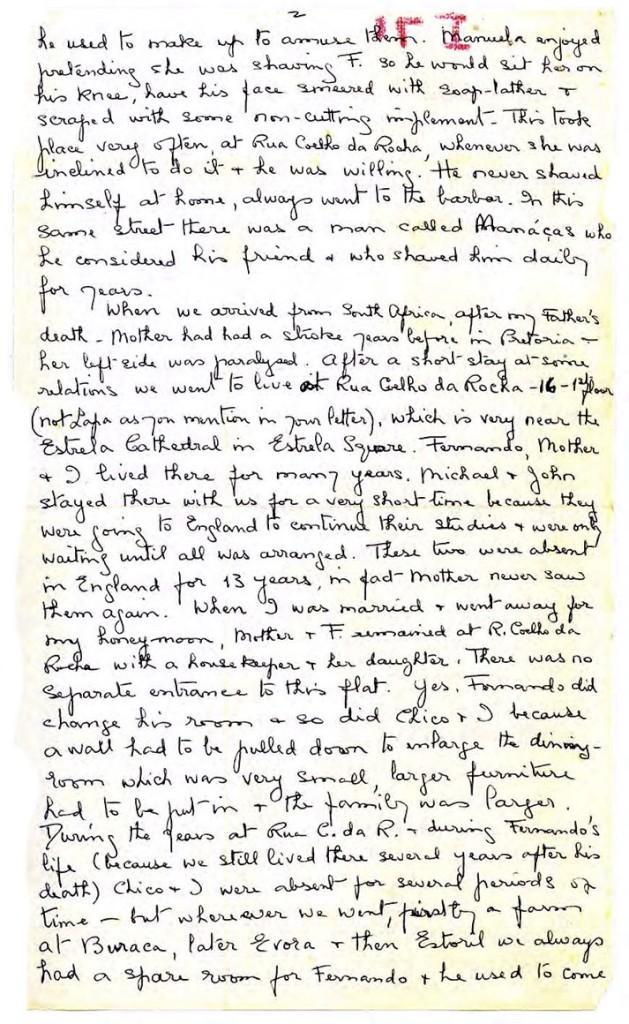 2
IFI
he used to make up to amuse them. Manuela enjoyed
pretending she was shaving F. so he would sit her on
his knee, have his face smeered with soap-lather +
scraped with some non-cutting implement - This took
place very often, at Rua Coelho da Rocha, whenever she was
inclined to do it + he was willing. He never shaved
himself at home, always went to the barber. In this
same street there was a man called Manáças who
he considered his friend + who shaved him daily
for years.
When we arrived from South Africa, after my Father's
death - Mother had had a stroke years before in Pretoria -
her left side was paralysed. After a short stay at some
relations we went to live at Rua Coelho da Rocha - 16 - 1st floor
(not Lapa as you mention in your letter), which is very near the
Estrela Cathedral in Estrela Square. Fernando, Mother
+ I lived there for many years. Michael + John
stayed there with us for a very short time because they
were going to England to continue their studies + were only
waiting until all was arranged. These two were absent
in England for 13 years, in fact Mother never saw
them again. When I was married + went away for
my honey-moon, Mother + F. remained at R. Coelho da
Rocha with a housekeeper + her daughter. There was no
separate entrance to this flat. Yes, Fernando did
change his room + so did Chico + I because
a wall had to be pulled down to enlarge the dining-
room which was very small, larger furniture
had to be put in + the family was larger.
During the years at Rua C. da R. + during Fernando's
life (because we still lived there several years after his
death) Chico + I were absent for several periods of
time - but wherever we went, firstly a farm
at Buraca, later Evora + then Estoril we always
had a spare room for Fernando + he used to come